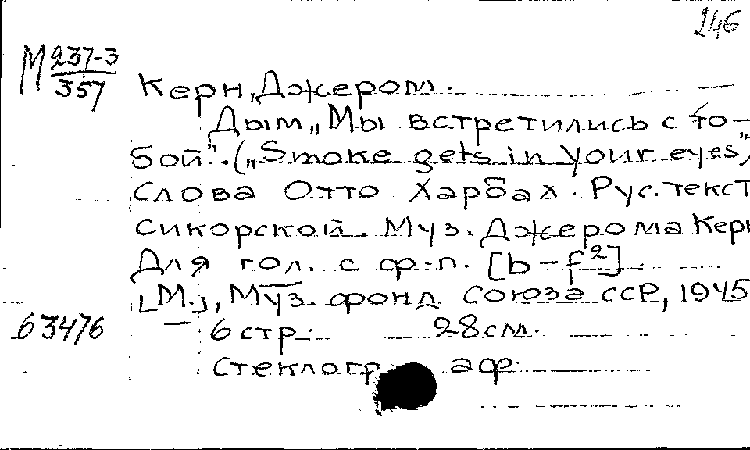 246
М 237-3
357
Керн, Джером.
Дым „Мы встретились с то-
бой". („Smoke gets in your eyes",
Слова Отто Харбах. Рус. текст
Сикорской. Муз. Джерома Керн
Для гол. с ф-п. [b-f²]
[М.], Муз. фонд Союза ССР, 1945
63476 — 6 стр. 28 см.
Стеклограф.